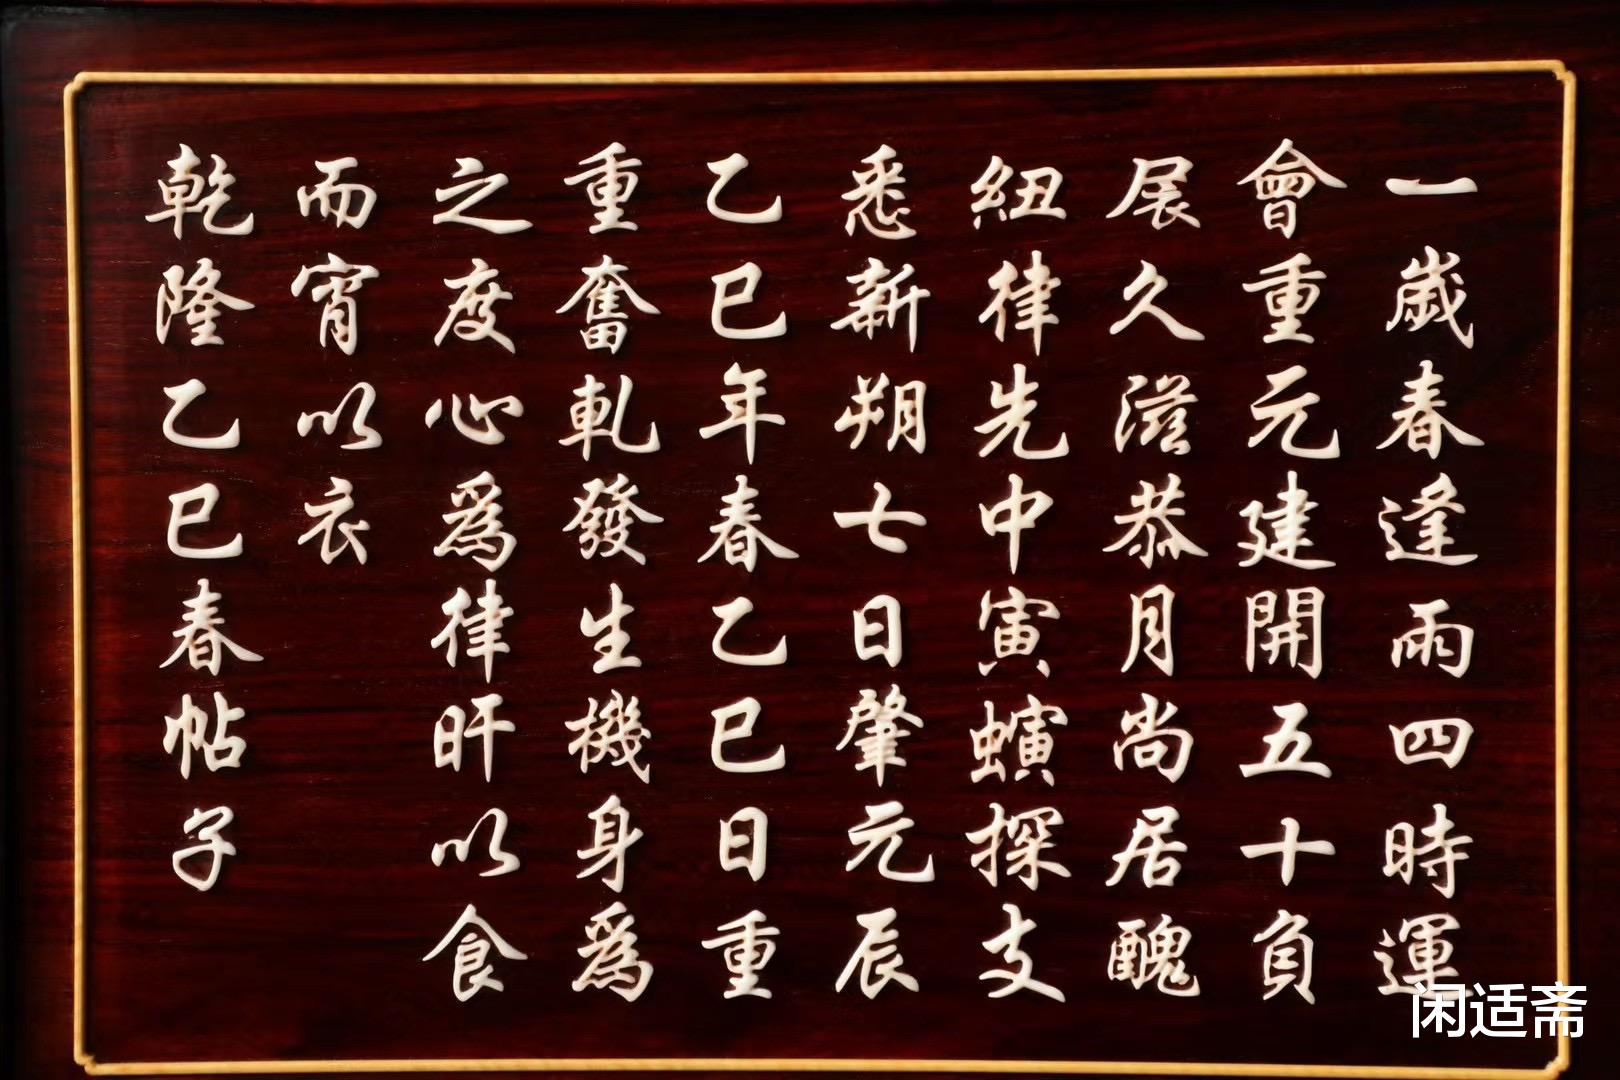 一歲春逢兩四時運
會重元建開五十負
扆久滋恭月尚居醜
紐律先中寅螾探支
悉新朔七日肇元辰
乙巳年春乙巳日重
重奮軋發生機身為
之度心為律旰以食
而宵以衣
乾隆乙巳春帖子
闲适斋